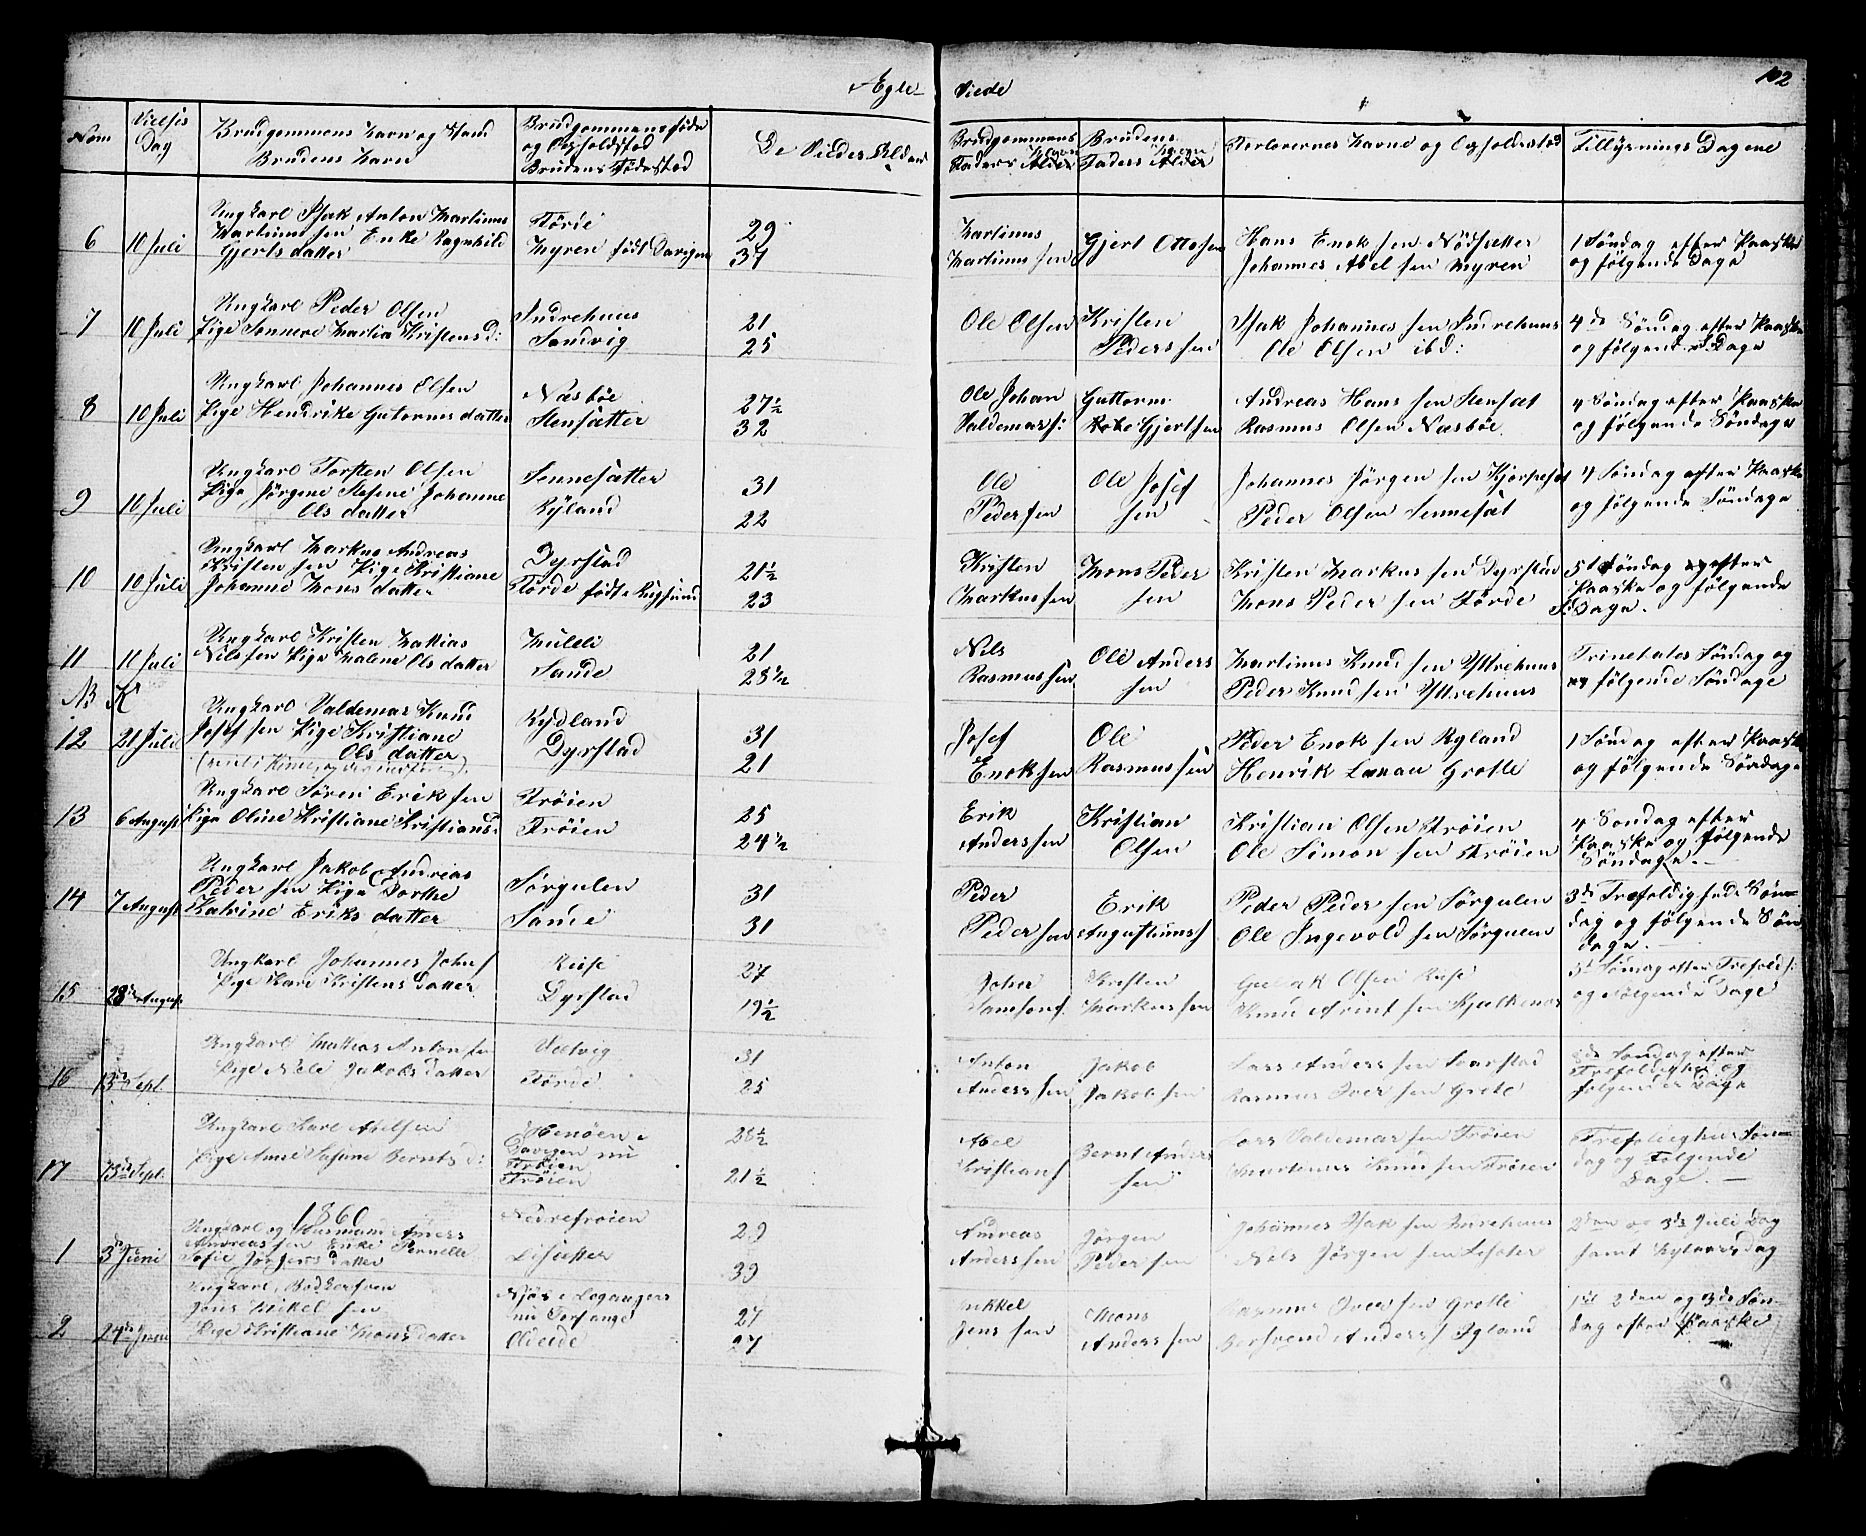 Ægte- Viede
102
Nom
Vielses Dag
Brudgommens Navn og Stand
Brudens Navn
Brudgommens føde
og Opholdsted
Brudens Fødested
De Viedes Alder
Brudgommens
Faders Navn
Brudens
Faders Navn
Forlovernes Navne og Opholdssted
Tillysnings Dagene
6
10 Juli
Ungkarl Isak Anton Martinus
Martinussen Enke Ragnhild
Gjertsdatter
Førde
Myren født Davigen
29
37
Martinus
Martinussen
Gjert Ottosen
Hans Enoksen Nødsætter
Johannes Abelsen Myren
1 Søndag efter Paaske
og følgende Dage
7
10 Juli
Ungkarl Peder Olsen
Pige Martia Kristensd:
Indrehuus
Sandvig
21
25
Ole Olsen
Kristen
Pedersen
Isak Johannessen Indrehuus
Ole Olsen ibd:
4de Søndag efter Paaske
og følgende S. Dage
8
10 Juli
Ungkarl Johannes Olsen
Pige Hendrike Gutormsdatter
Næsbøe
Stensætter
27½
32
Ole Johan
Valdemars:
Guttorm
Gjertsen
Andreas Hanssen Stensæt
Rasmus Olsen Næsbøe
4 Søndag efter Paaske
og følgende Søndage
9
10 Juli
Ungkarl Torsten Olsen
Pige Jørgine Stefine Johanne
Olsdatter
Sennesætter
Ryland
31
22
Ole
Pedersen
Ole Josef
sen
Johannes Jørgensen
Peder Olsen Sennesæt
4 Søndag efter Paaske
og følgende Søndage
10
10 Juli
Ungkarl Markus Andreas
Kristensen Pige Kristiane
Johanne Monsdatter
Dyrstad
Førde født i Rugsund
21½
23
Kristen
Markussen
Mons Peder
sen
Kristen Markussen Dyrstad
Mons Pedersen Førde
5t Søndag efter
Paaske og følgende
S: Dage.
11
11 Juli
Ungkarl Kristen Mattias
Nilssen Pige Malene Olsdatter
Muleli
Sande
21
28½
Nils
Rasmussen
Ole Anders
sen
Martinus Knudsen Yttrehuus
Peder Knudsen Yttrehuus
Trinetates Søndag og
følgende Søndage
NB
12
21 Juli
Ungkarl Valdemar Knud
Josefsen Pige Kristiane
Olsdatter
Rydland
Dyrstad
31
21
Josef
Enoksen
Ole
Rasmussen
Peder Enoksen Ryland
Henrik Lanau Grotle
1 Søndag efter Paaske
og følgende Søndage
13
6 August
Ungkarl Søren Eriksen
Pige Oline Kristiane Kristiansd:
Frøien
Frøien
25
24½
Erik
Anderssen
Kristian
Olsen
Kristian Olsen Frøien
Ole Simonsen Frøien
4 Søndag efter
Paaske og følgende
Søndage.
14
7 August
Ungkarl Jakob Andreas
Pedersen Pige Dorthe
Katrine Eriksdatter
Sørgulen
Sande
31
31
Peder
Pedersen
Erik
Augustinuss
Peder Pedersen Sørgulen
Ole Ingevoldsen Sørgulen
3de Trefoldigheds Søn-
dag og følgende Søn
dage.
15
28de August
Ungkarl Johannes Johns
Pige Kari Kristensdatter
Ruse
Dyrstad
27
19½
John
Samsons.
Kristen
Markussen
Gulak Olsen Ruse
Knud Arentsen
5t Søndag efter Trefolds:
og følgende Dage
16
13de Sept.
Ungkarl Mathias Antonsen
Pige Nele Jakobsdatter
Førde
31
25
Anton
Anderssen
Jakob
Jakobsen
Lars Anderssen
Rasmus Iversen Grotle
Søndag efter
Trefoldighed og
følgendes Dage
17
13de Sept.
Ungkarl Karl Abelsen
Pige Anne Berntsd:
Henøen i
Davigen nu
Frøien
Frøien
28½
21½
Abel
Kristians
Bernt Anders
sen
Lars Valdemarsen Frøien
Martinus Knudsen Frøien
Trefoldighets Søn-
dag og følgende
Dage.
1860
1
3de Juni
Ungkarl og Husmand Anders
Andreassen Enke Pernelle
Sofie Jørgensdatter
Nedrefrøien
Lisæter
29
39
Andreas
Anderssen
Jørgen
Pedersen
Johannes Isaksen
Nils Jørgensen Lisæter
2den og 3de Juli Dag
samt Nytaarsdag
2
24de Juni
Ungkarl, Bødkersven
Jens Mikelsen
Pige Kristiane Monsdatter
Njøs i Leganger
nu Torfange
Oldeide
27
27
Mikkel
Jenssen
Mons
Anderssen
Rasmus Iversen Grotle
Anders Igland
1ste 2den og 3de Søn-
dag efter Paaske